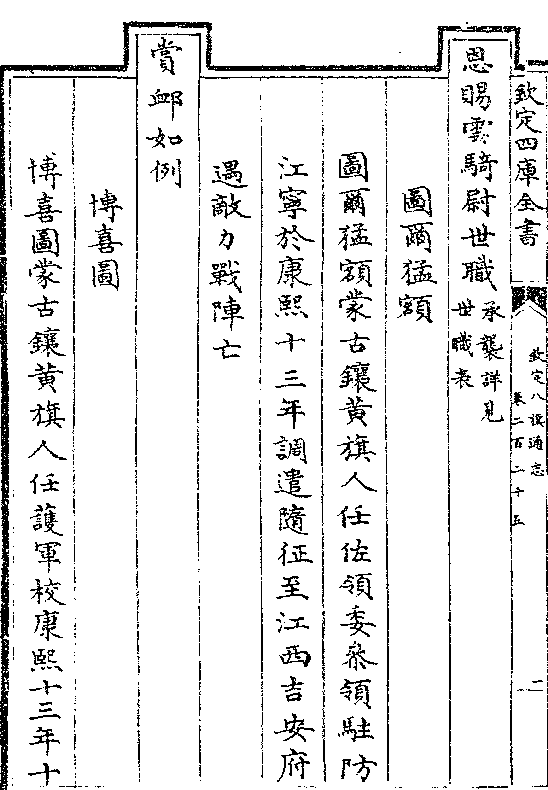 欽定四庫全書
欽定八旗通志
卷二百二十五
二
恩賜雲騎尉世職承襲詳見
世職表
圖爾猛額
圖爾猛額蒙古鑲黃旗人任佐領委叅領駐防
江寧於康熙十三年調遣隨征至江西吉安府
遇敵力戰陣亡
賞䘏如例
博喜圖
博喜圖蒙古鑲黃旗人任護軍校康熙十三年十